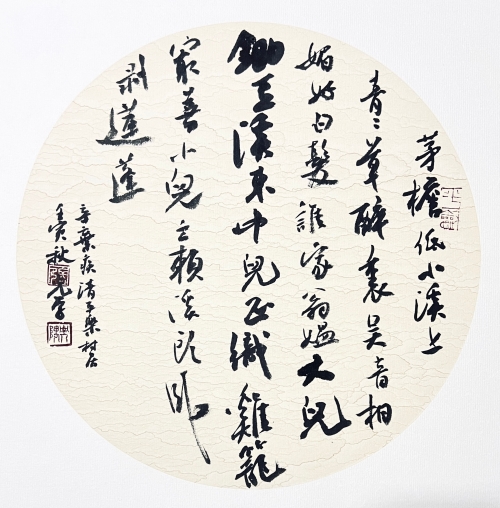 茅檐低小溪上
青々草醉裏吴音相
媚好白髮誰家翁媪大兒
鋤豆溪東中兒正織雞籠
最喜小兒亡賴溪頭卧
剥蓮蓬
辛棄疾清平樂村居
壬寅秋